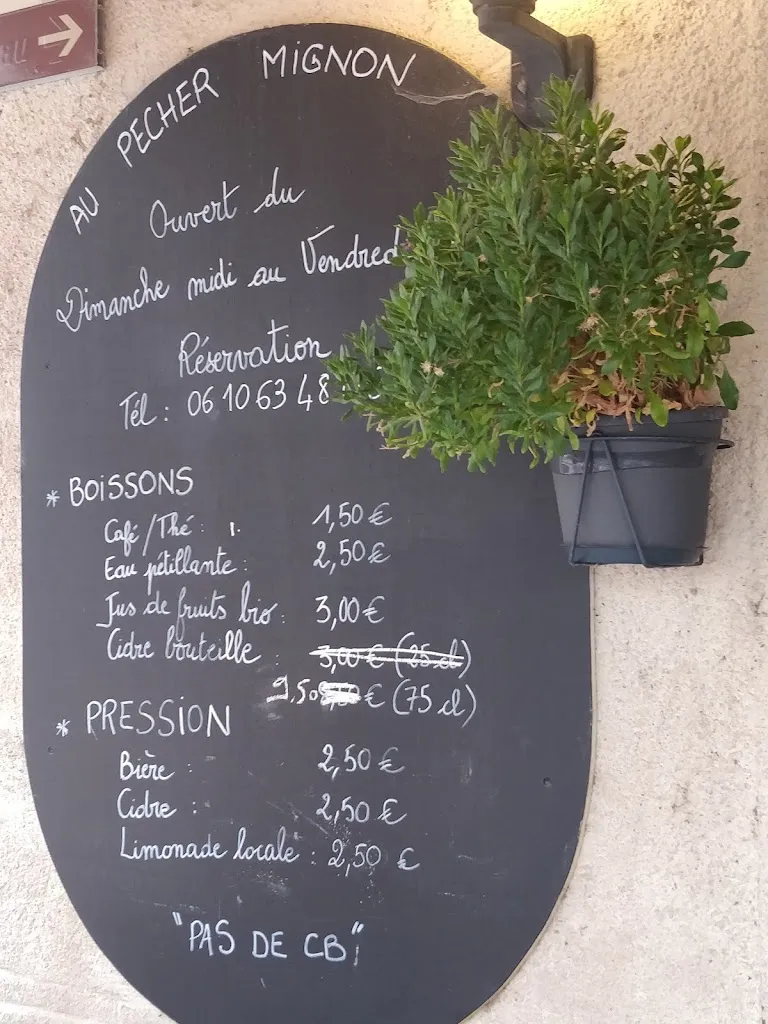 AU PECHER MIGNON
Ouvert du
Dimanche midi au Vendred
Réservation
Tél : 06 10 63 48
* BOISSONS
Café/Thé : 1,50 €
Eau pétillante : 2,50 €
Jus de fruits bio : 3,00 €
Cidre bouteille : 3,00 € (25 cl)
9,50 € (75 cl)
* PRESSION
Bière : 2,50 €
Cidre : 2,50 €
Limonade locale : 2,50 €
"PAS DE CB"